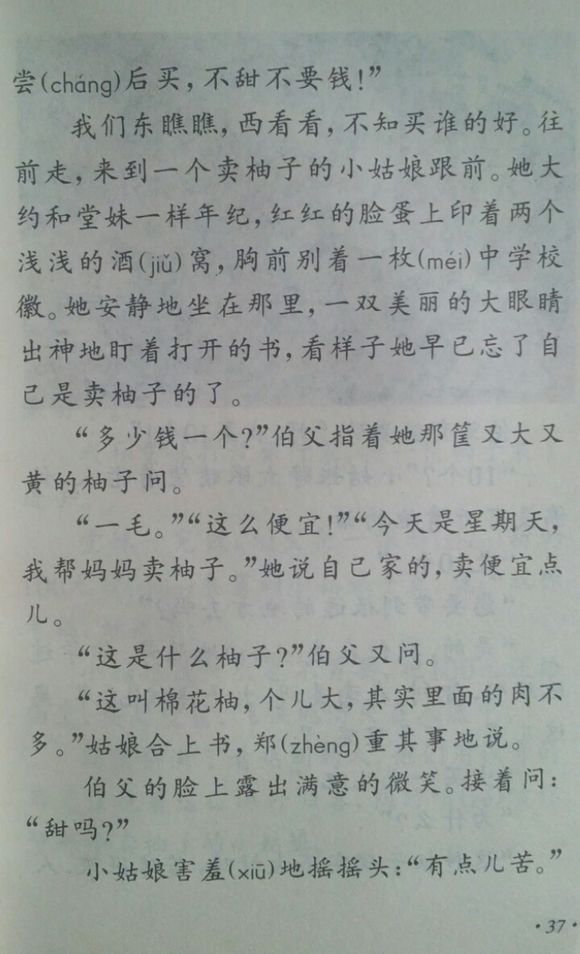 尝(cháng)后买，不甜不要钱！”
我们东瞧瞧，西看看，不知买谁的好。往
前走，来到一个卖柚子的小姑娘跟前。她大
约和堂妹一样年纪，红红的脸蛋上印着两个
浅浅的酒(jiǔ)窝，胸前别着一枚(méi)中学校
徽。她安静地坐在那里，一双美丽的大眼睛
出神地盯着打开的书，看样子她早已忘了自
己是卖柚子的了。
“多少钱一个？”伯父指着她那筐又大又
黄的柚子问。
“一毛。”“这么便宜！”“今天是星期天，
我帮妈妈卖柚子。”她说自己家的，卖便宜点
儿。
“这是什么柚子？”伯父又问。
“这叫棉花柚，个儿大，其实里面的肉不
多。”姑娘合上书，郑(zhèng)重其事地说。
伯父的脸上露出满意的微笑。接着问：
“甜吗？”
小姑娘害羞(xiū)地摇摇头：“有点儿苦。”
·37·